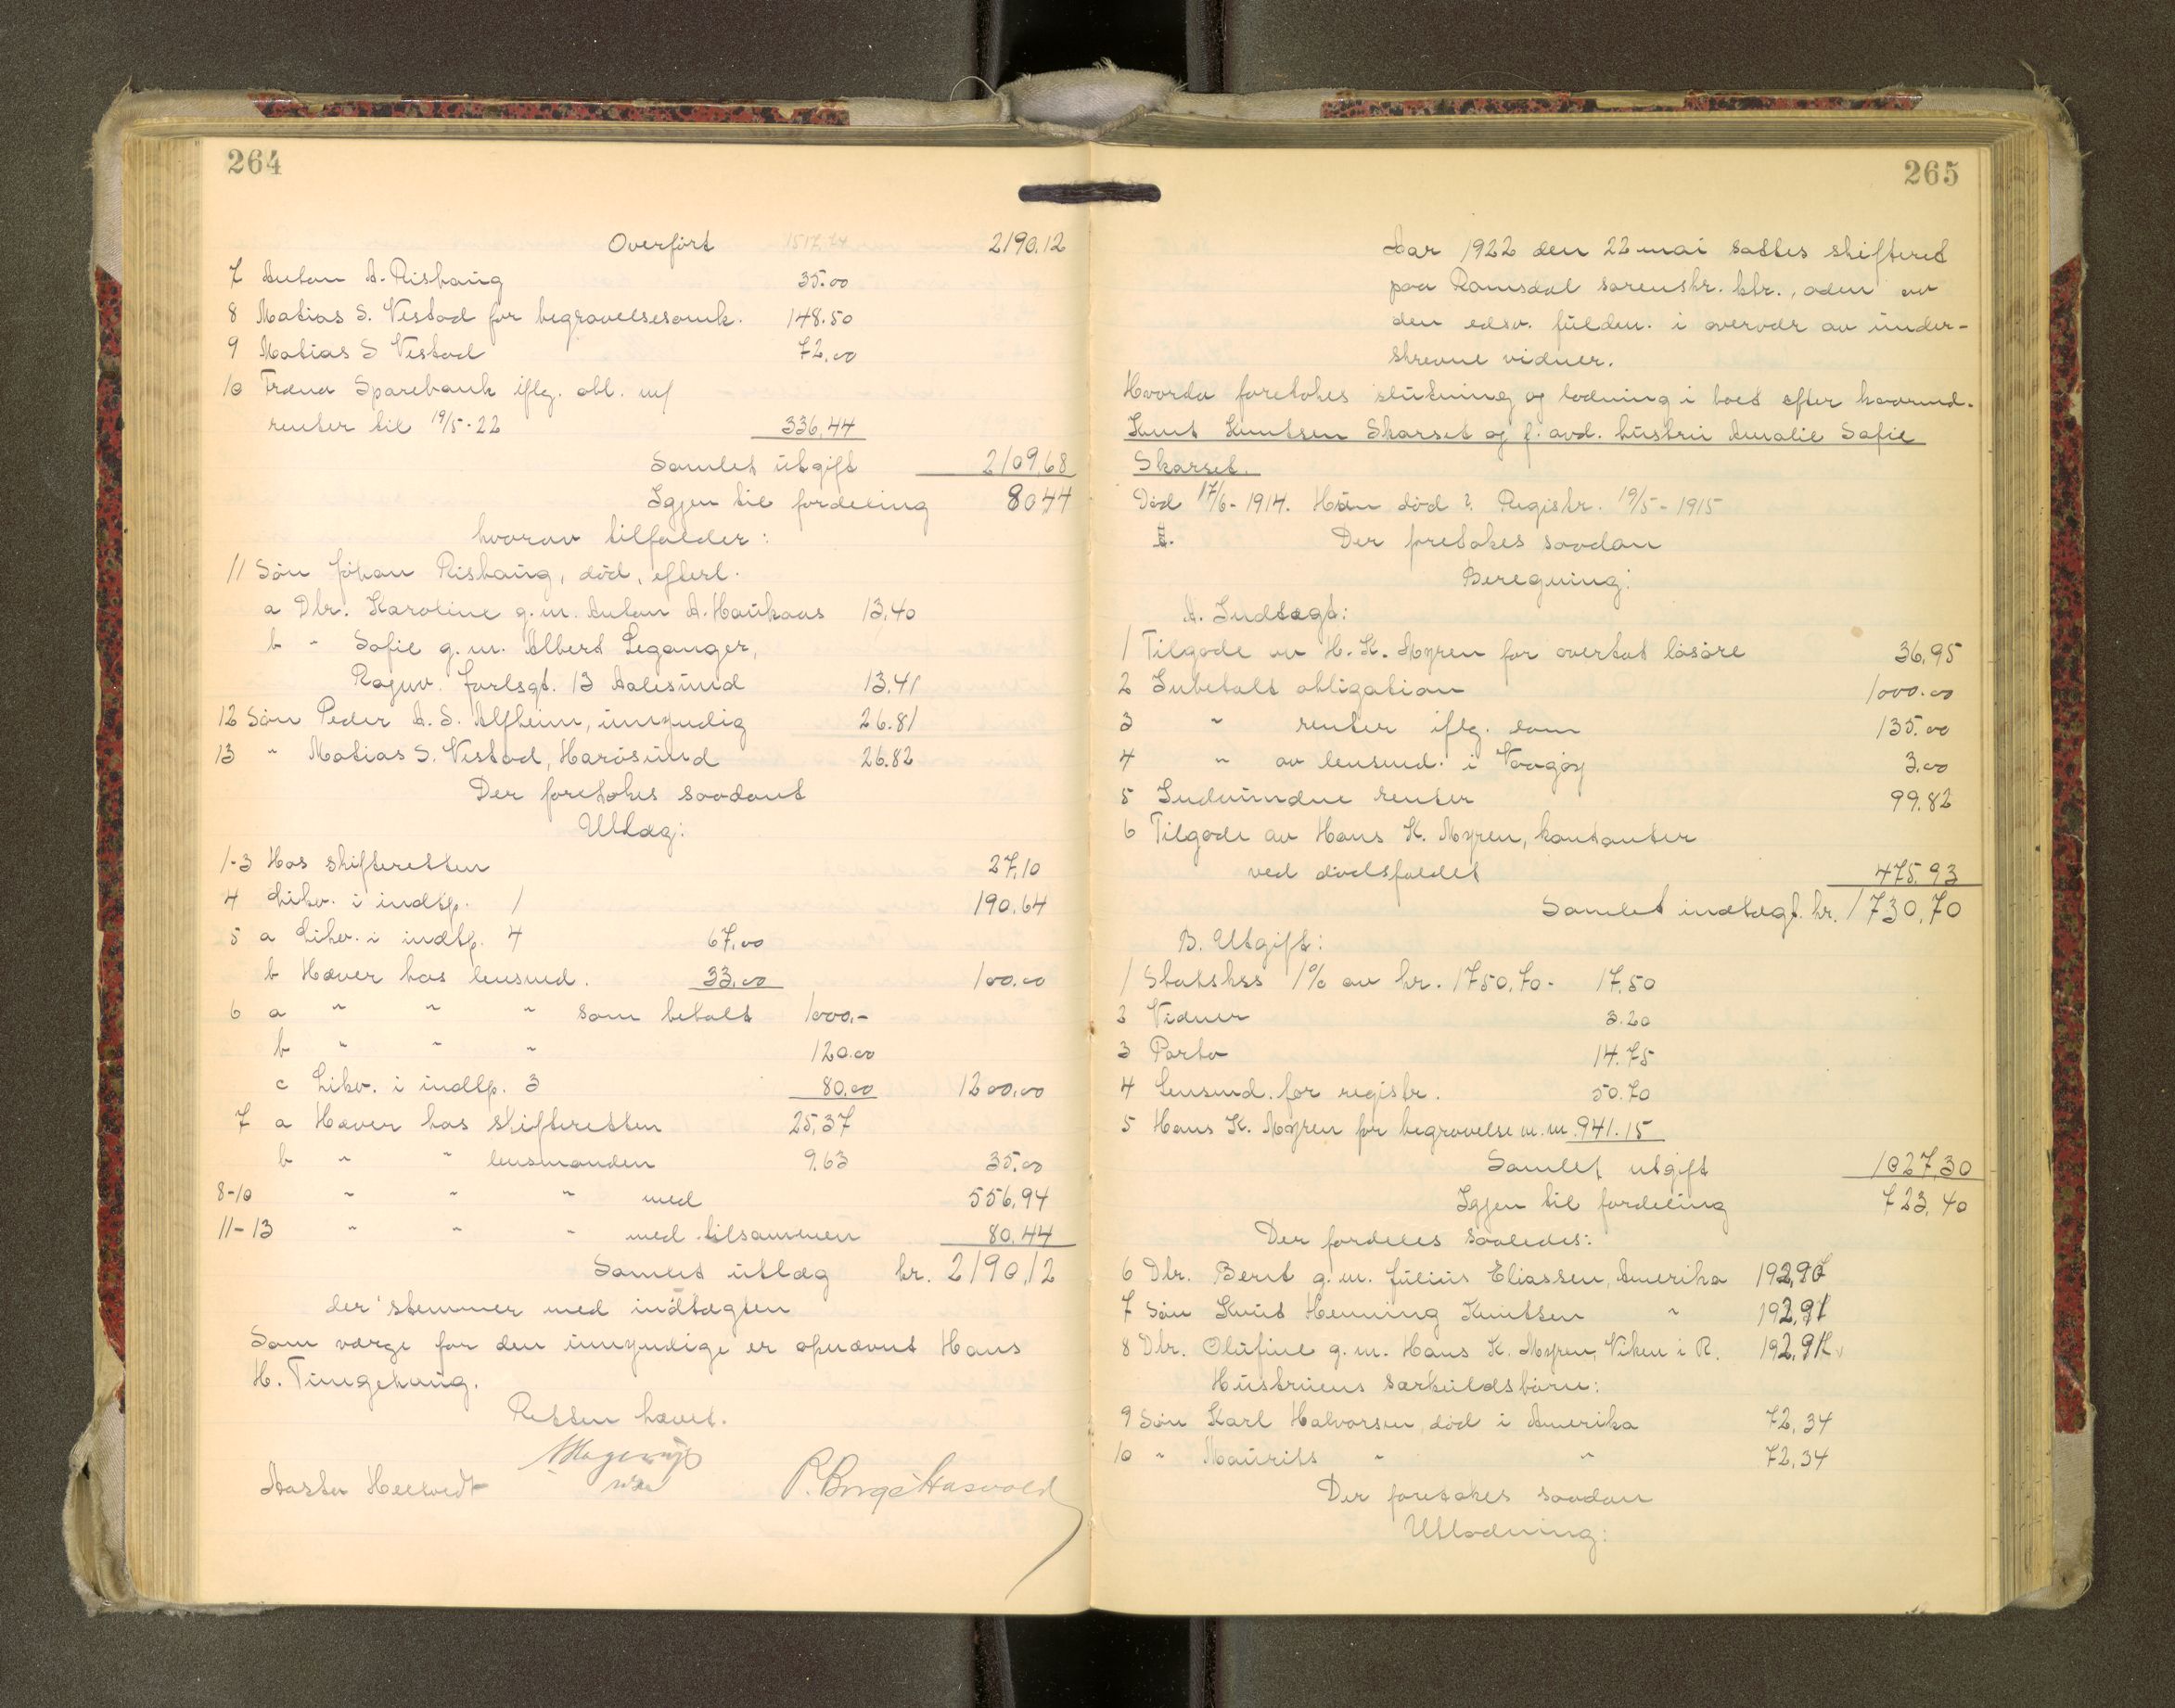 264
Overført 1517.24 2190.12
7 Anton A. Rishaug 35.00
8 Matias S. Vestad for begravelsesomk. 148.50
9 Matias S Vestad 72.00
10 Fræna Sparebank iflg. obl. m/
renter til 19/5-22 336,44
Samlet utgift 2109,68
Igjen til fordeling 80,44
hvorav tilfalder:
11 Søn Johan Rishaug, død, efterl.
a Dtr. Karoline g.m. Anton A. Haukaas 13,40
b " Sofie g.m. Albert Leganger,
Ragnv. Jarlsgt. 13 Aalesund 13.41
12 Søn Peder A. S. Alfheim, umyndig 26.81
13 " Matias S. Vestad, Harøsund 26.82
Der foretokes saadant
Utlæg:
1-3 Hos skifteretten 27,10
4 Likv. i indtp. 1 190.64
5 a Likv. i indtp. 4 67,00
b Hæver hos lensmd. 33,00 100.00
6 a " " " som betalt 1000.-
b " " " 120.00
c Likv. i indtp. 3 80.00 1200.00
7 a Hæver hos skifteretten 25,37
b " " lensmanden 9.63 35.00
8-10 " " " med 556,94
11-13 " " " med tilsammen 80.44
Samlet utlæg kr. 2190,12
der stemmer med indtægten
Som værge for den umyndige er opnævnt Hans
H. Tungehaug.
Retten hævet.
265
Aar 1922 den 22 mai sattes skifteret
paa Romsdal sorenskr. ktr., aden av
den edsv. fuldm. i overvær av under-
skrevne vidner.
Hvorda foretokes slutning og lodning i boet efter kaarmd.
Knut Knutsen Skarset og f. avd. hustru Amalie Sofie
Skarset.
Død 17/6-1914. Hun død ? Registr. 19/5-1915
Der foretokes saadan
Beregning:
A. Indtægt:
1 Tilgode av H. K. Myren for overtat løsøre 36,95
2 Indbetalt obligation 1000.00
3 " renter iflg. dom 135.00
4 " av lensmd. i Vaagøy 3.00
5 Indvundne renter 99.82
6 Tilgode av Hans K. Myren, kontanter
ved dødsfaldet 475.93
Samlet indtægt. kr. 1730,70
B. Utgift:
1 Statskss 1% av kr. 1750.70- 17,50
2 Vidner 3.20
3 Porto 14.75
4 lensmd. for registr. 50.70
5 Hans K. Myren for begravelse m.m. 941.15
Samlet utgift 1027,30
Igjen til fordeling 723,40
Der fordeles saaledes:
6 Dtr. Berit g.m. Julius Eliassen, Amerika 192,90
7 Søn Knut Henning Knutsen " 192,91
8 Dtr. Olufine g.m. Hans K. Myren, Viken i R. 192.91
Hustruens særkuldsbarn:
9 Søn Karl Halvorsen, død i Amerika 72,34
10 " Maurits " " 72,34
Der foretokes saadan
Utlodning: